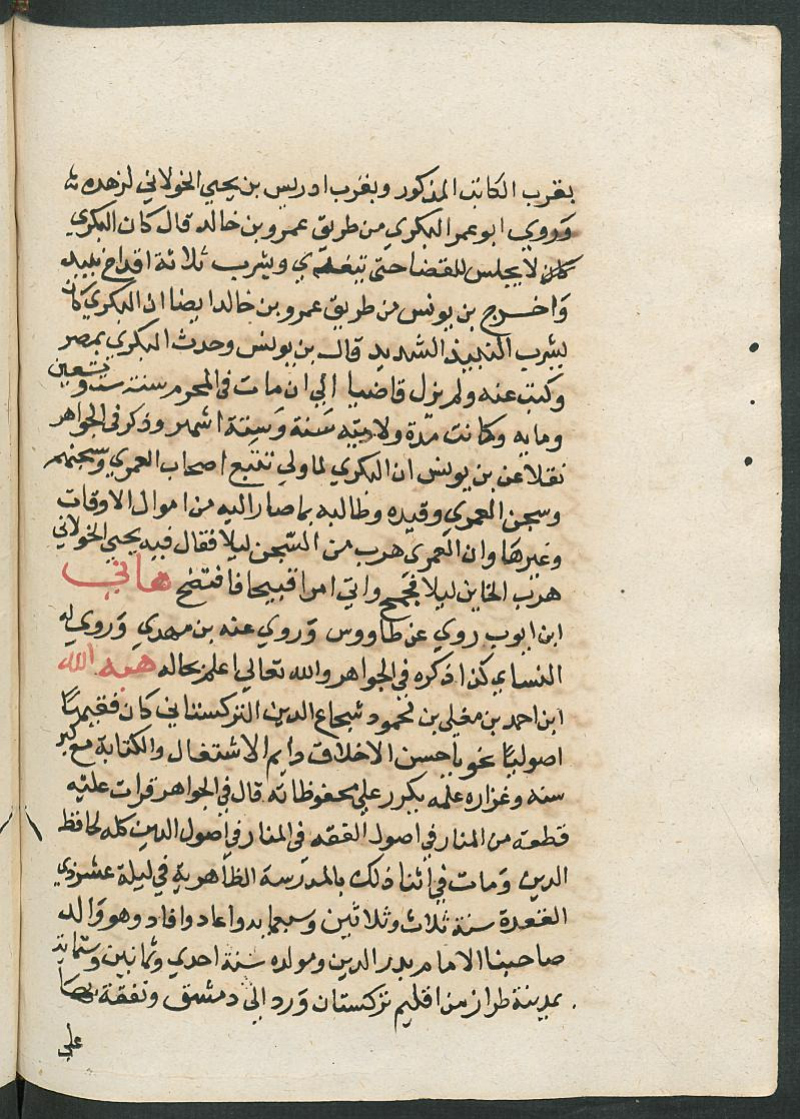 بقرب الكاتب المذكور وبقرب ادريس بن يحيي الخولاني لزهده
وروي ابو عمر البكري من طريق عمرو بن خالد قال كان البكري
لا يجلس للقضا حتى يتغدي ويشرب ثلاثة اقداح نبيد
واخرج بن يونس من طريق عمرو بن خالد ايضا ان البكري كان
يشرب النبيذ الشديد قال بن يونس وحدث البكري بمصر
وكتب عنه ولم يزل قاضيا الي ان مات في المحرم سنة ست وتسعين
ومايه وكانت مدة ولايته سنة وستة اشهر وذكر في الجواهر
نقلا عن بن يونس ان البكري لما ولي تتبع اصحاب العمري وسجنهم
وسجن العمري وقيده وطالبه بما صار اليه من اموال الاوقات
وغيرها وان العمري هرب من السجن ليلا فقال فيه يحيي الخولاني
هرب الخاين ليلا فجمح واتي امرا قبيحا فافتضح هاني
ابن ايوب روي عن طاووس وروي عنه بن مهدي وروي له
النساي كذا ذكره في الجواهر والله تعالي اعلم بحاله هبه الله
ابن احمد بن معلي بن محمود شجاع الدين التركستاني كان فقيها
اصوليا نحويا حسن الاخلاق دايم الاشتغال والكتابة مع كبر
سنه وغزاره علمه يكرر علي محفوظاته قال في الجواهر قرات عليه
قطعة من المنار في اصول الفقه في المنار في اصول الدين كله لحافظ
الدين ومات في اثنا ذلك بالمدرسة الظاهرية في ليلة عشر ذي
القعدة سنة ثلاث وثلاثين وسبعمايه واعاد وافاد وهو والد
صاحبنا الامام بدر الدين ومولده سنة احدي وثمانين وستماية
بمدينة طراز من اقليم تركستان ورد الي دمشق وتفقه بها
علي